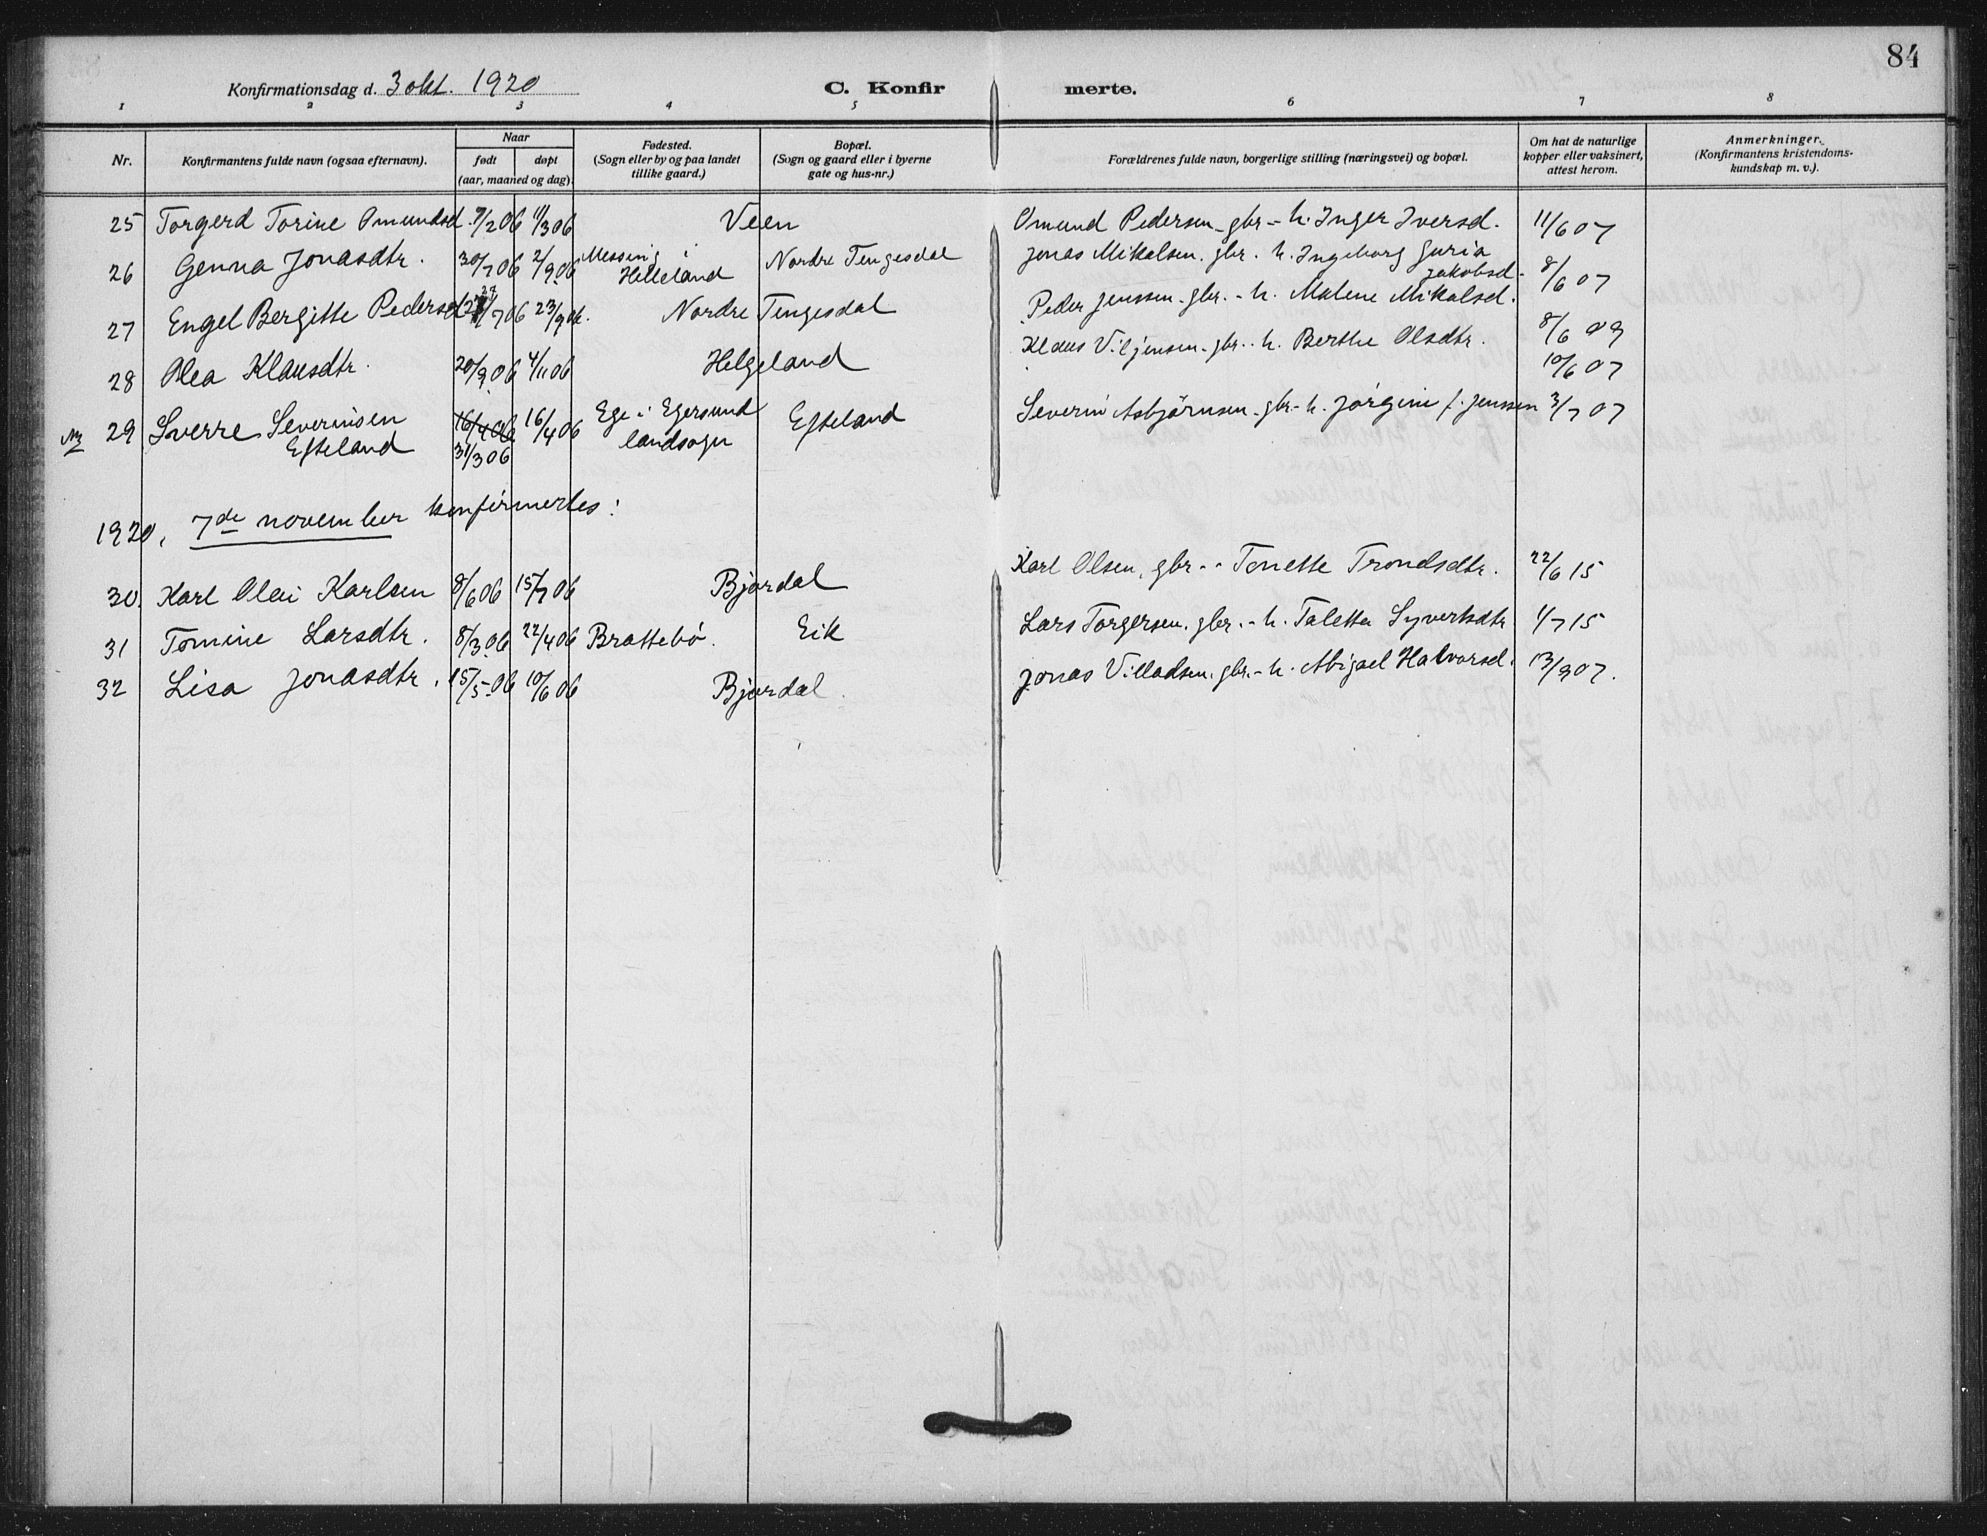 84
Konfirmationsdag d. 3 okt. 1920 C. Konfirmerte.
1 2 3 4 5 6 7 8
Nr. Konfirmantens fulde navn (ogsaa efternavn). Naar født døpt (aar, maaned og dag). Fødested. (Sogn eller by og paa landet tillike gaard.) Bopæl. (Sogn og gaard eller i byerne gate og hus-nr.) Forældrenes fulde navn, borgerlige stilling (næringsvei) og bopæl. Om hat de naturlige kopper eller vaksinert, attest herom. Anmerkninger. (Konfirmantens kristendoms-kundskap m. v.).
25 Torgerd Torine Omundsd. 7/2 06 11/3 06 Veen Omund Pedersen gbr - h. Inger Iversd. 11/6 07
26 Genna Jonasdtr. 30/7 06 2/9 06 Messing i Helleland Nordre Tengesdal Jonas Mikalsen. gbr. h. Ingeborg Guria Jakobsd. 8/6 07
27 Engel Bergitte Pedersd 27/7 06 23/9 06. Nordre Tengesdal Peder Jenssen gbr. - h. Malene Mikalsd. 8/6 09
28 Olea Klausdtr. 20/9 06 4/11 06 Helgeland Klaus Viljensen gbr. h. Berthe Olsdtr. 10/6 07
29 Sverre Severinsen Efteland 16/4 06 31/3 06 16/4 06 Ege i Egersund landsogn Efteland Severin Asbjörnsen gbr - h. Jörgine f. Jenssen 3/7 07
1920, 7de november konfirmertes:
30. Karl Olai Karlsen 8/6 06 15/7 06 Bjordal Karl Olsen, gbr - - Tonette Trondsdtr. 22/6 15
31 Tomine Larsdtr. 8/3 06 22/4 06 Brattebø. Eik Lars Torgersen. gbr. - h. Taletta Syvertsdtr 1/7 15
32 Lisa Jonasdtr. 15/5 06 10/6 06 Bjordal. Jonas Villadsen. gbr. - h. Abigael Halvorsd. 13/9 07.